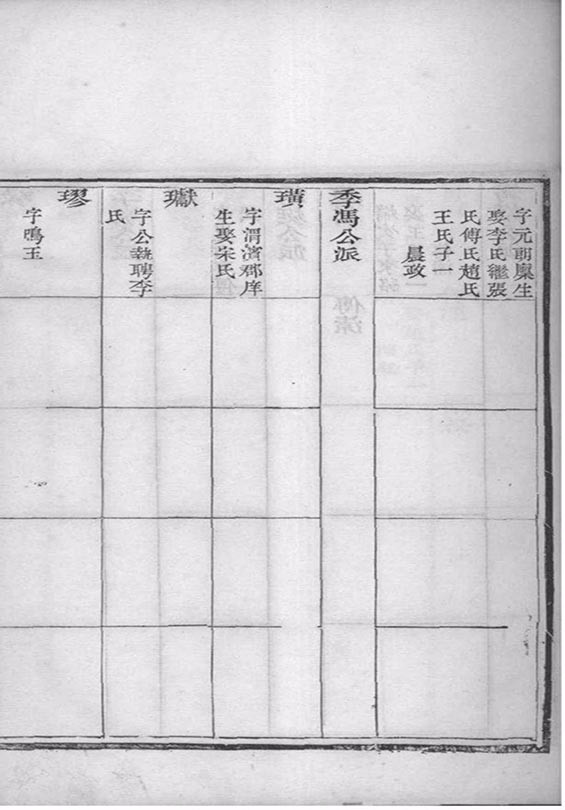 字元朗廩生
娶李氏繼張
氏傅氏趙氏
王氏子一
晨政
季馮公派
璜
字渭濱郡庠
生娶宋氏
瓛
字公執聘李
氏
璆
字鳴玉